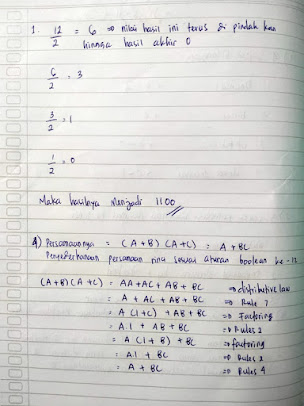 1. 12/2 = 6 => nilai hasil ini terus di pindah kan
hingga hasil akhir 0
6/2 = 3
3/2 = 1
1/2 = 0
Maka hasilnya menjadi 1100
4) Persamaannya = (A+B) (A+C) = A + BC
Penyederhanaan persamaan ini sesuai aturan boolean ke-12
(A+B)(A+C) = AA + AC + AB + BC => distributive law
= A + AC + AB + BC => Rule 7
= A (1+C) + AB + BC => Factoring
= A.1 + AB + BC => Rules 2
= A (1+B) + BC => factoring
= A.1 + BC => Rules 2
= A + BC => Rules 4